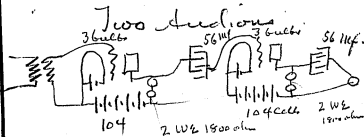 Two Audions
3 bulbs 56 Mf. 3 bulbs 56 Mf.
104 2 WE 1800 ohm 104 Cells 2 WE 1800 ohm